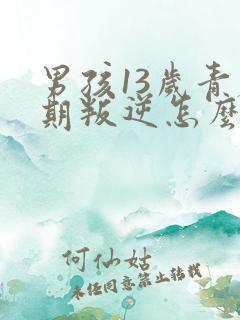 男孩13歲青
期叛逆怎麼
何仙姑
未经同意禁止转载